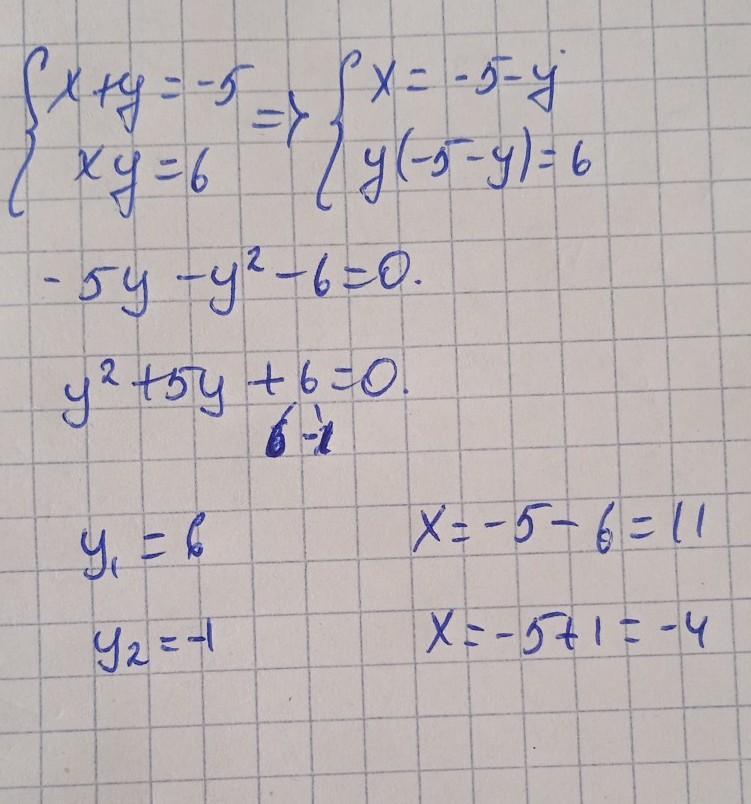 { x+y=-5 => { x=-5-y
xy=6 y(-5-y)=6
-5y-y²-6=0.
y²+5y+6=0.
6 -1
y₁=6 x=-5-6=11
y₂=-1 x=-5+1=-4